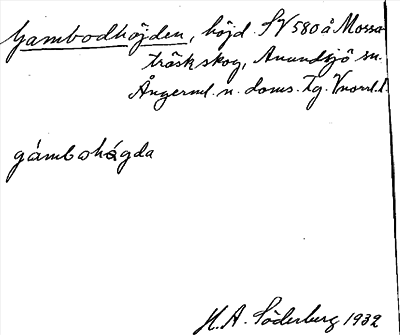 Gambodhöjden, höjd. SV 580 å Mossa-
träskskog, Anundsjö sn.
Ångerml. n. doms. Tg. Vnorrl. l.
gámbohágda
H. A. Söderberg 1932